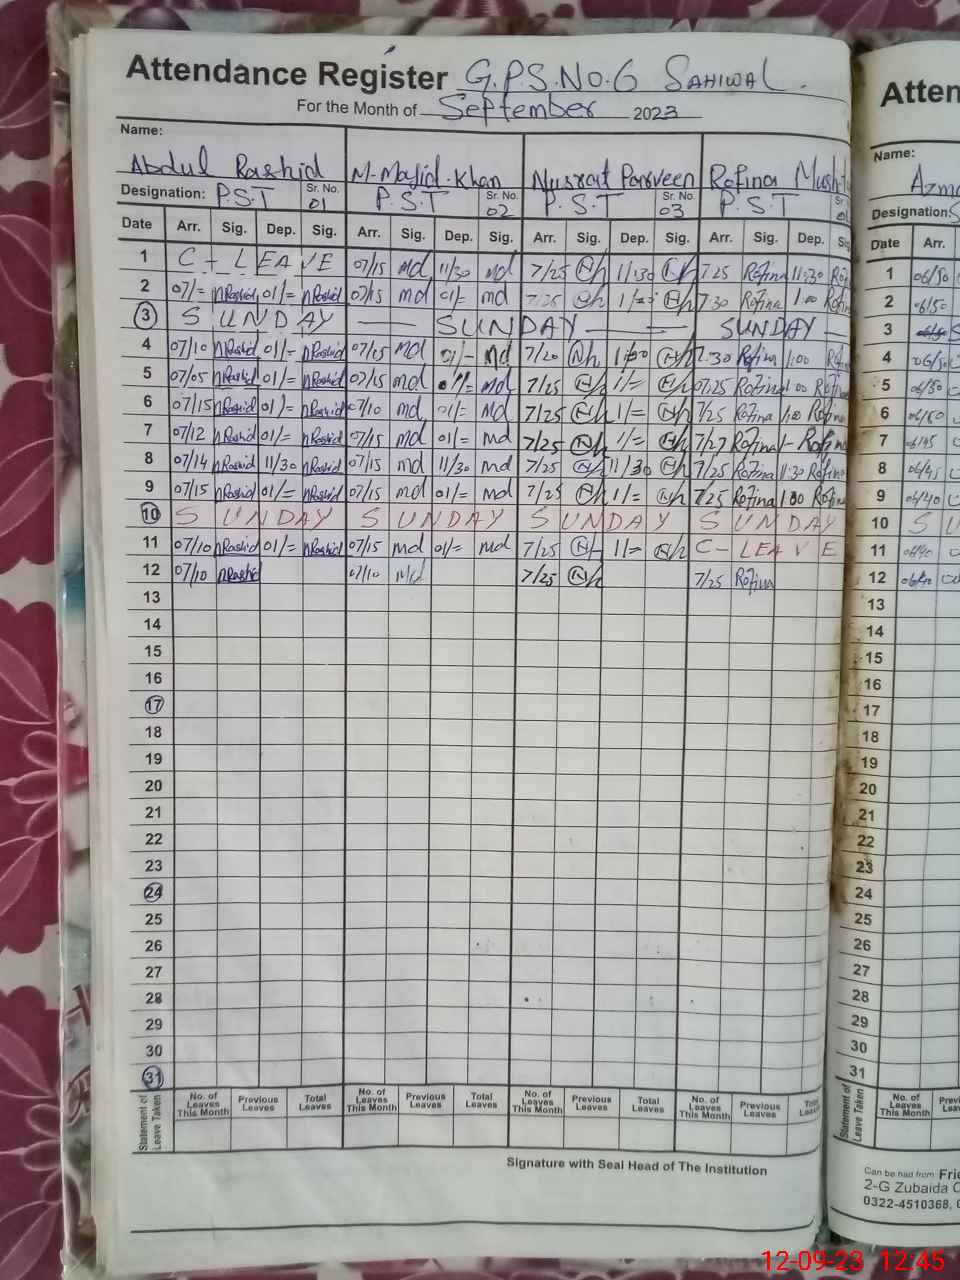 Attendance Register G.P.S.No.6 SAHIWAL.
For the Month of September 2023
Name:
Abdul Rashid M-Majid-Khan Nusrat Parveen Rofina
Designation: P.S.T Sr. No. 01 P.S.T Sr. No. 02 P.S.T Sr. No. 03 P.S.T
Date Arr. Sig. Dep. Sig. Arr. Sig. Dep. Sig. Arr. Sig. Dep. Sig. Arr. Sig. Dep. Sig
1 C - LEAVE 07/15 md 11/30 md 7/25 Nh 11:30 Nh 7.25 Rofina 11:30 Rof
2 07/= nRashid 01/= nRashid 07/15 md 01/= md 7/25 Nh Nh 7.30 Rofina 1.00 Rofin
3 SUNDAY SUNDAY SUNDAY
4 07/10 nRashid 01/= nRashid 07/15 md 01/- md 7/20 Nh 1:00 Nh 7.30 Rofina 1:00 Rof
5 07/05 nRashid 01/= nRashid 07/15 md 01/= md 7/25 Nh 1/= Nh 07.25 Rofina 1.00 Rofin
6 07/15 nRashid 01/= nRashid 07/10 md 01/= md 7/25 Nh 1/= Nh 7/25 Rofina 1.00 Rofina
7 07/12 nRashid 01/= nRashid 07/15 md 01/= md 7/25 Nh 1/= Nh 7/27 Rofina 1/- Rofin
8 07/14 nRashid 11/30 nRashid 07/15 md 11/30 md 7/25 Nh 11/30 Nh 7/25 Rofina 11:30 Rofina
9 07/15 nRashid 01/= nRashid 07/15 md 01/= md 7/25 Nh 1/= Nh 7/25 Rofina 1.00 Rofina
10 SUNDAY SUNDAY SUNDAY SUNDAY
11 07/10 nRashid 01/= nRashid 07/15 md 01/= md 7/25 Nh 1/= Nh C - LEAVE
12 07/10 nRashid 07/10 md 7/25 Nh 7/25 Rofina
13
14
15
16
17
18
19
20
21
22
23
24
25
26
27
28
29
30
31
Statement of Leave Taken
No. of Leaves This Month Previous Leaves Total Leaves No. of Leaves This Month Previous Leaves Total Leaves No. of Leaves This Month Previous Leaves Total Leaves No. of Leaves This Month Previous Leaves
Signature with Seal Head of The Institution
Atten
Name:
Azm
Designation:
Date Arr.
1 06/50
2 06/50
3
4 06/50
5 06/50
6 06/50
7 06/45
8 06/45
9 06/40
10 SU
11 06/40
12 06/40
13
14
15
16
17
18
19
20
21
22
23
24
25
26
27
28
29
30
31
Statement of Leave Taken
No. of Leaves This Month Previ Leav
Can be had from Frie
2-G Zubaida C
0322-4510368,
12-09-23 12:45